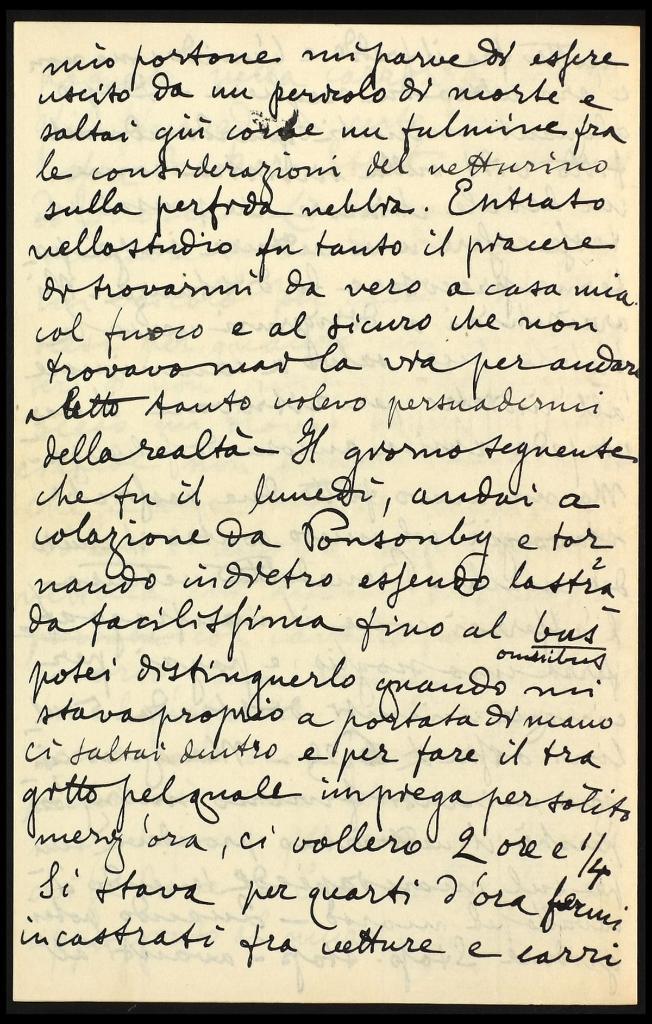 mio portone mi parve di essere
uscito da un pericolo di morte e
saltai giù come un fulmine fra
le considerazioni del vetturino
sulla perfida nebbia. Entrato
nello studio fu tanto il piacere
di trovarmi da vero a casa mia
col fuoco e al sicuro che non
trovavo mai la via per andare
a letto tanto volevo persuadermi
della realtà - Il giorno seguente
che fu il lunedì, andai a
colazione da Ponsonby e tor
nando indietro essendo la stra
da facilissima fino al bus
omnibus
potei distinguerlo quando mi
stava proprio a portata di mano
ci saltai dentro e per fare il tra
gitto pel quale impiega per solito
mezz'ora, ci vollero 2 ore e 1/4
Si stava per quarti d'ora fermi
incastrati fra vetture e carri